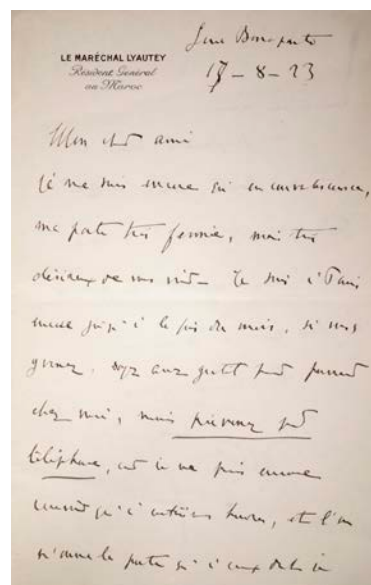 5 rue Bonaparte
LE MARÉCHAL LYAUTEY
Résident Général
au Maroc
17-8-23
Mon cher ami
Je ne suis encore qu'en convalescence,
ma porte très fermée, mais très
désireux de vous voir. Je suis à Paris
encore jusqu'à la fin du mois, si vous
soyez assez gentil pour
chez moi, mais prévenez par
téléphone, car je ne puis encore
qu'à certaines heures, et l'on
n'ouvre la porte qu'à ceux